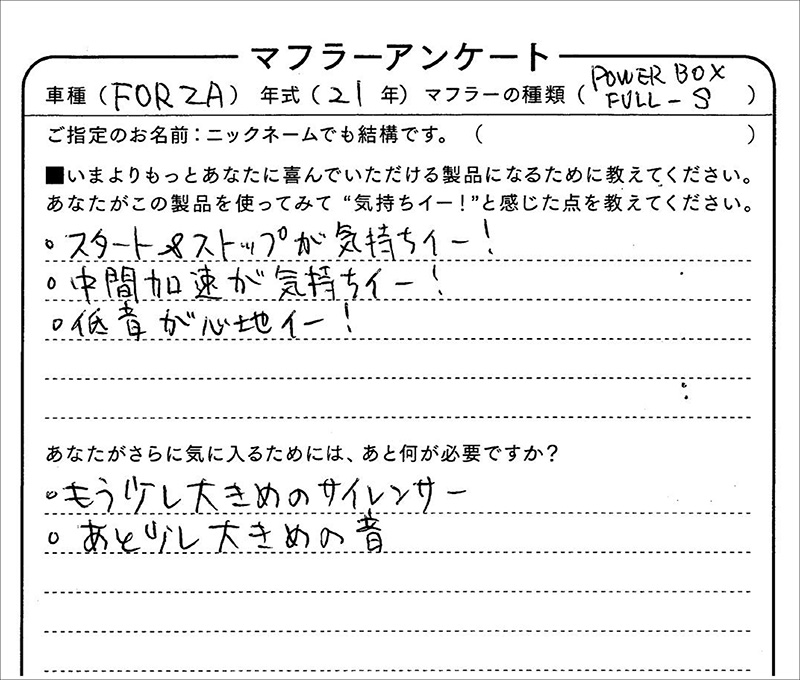 マフラーアンケート
車種（FORZA） 年式（21 年）マフラーの種類（POWER BOX FULL-S）
ご指定のお名前：ニックネームでも結構です。（　　　）
■いまよりもっとあなたに喜んでいただける製品になるために教えてください。
あなたがこの製品を使ってみて“気持ちイー！”と感じた点を教えてください。
○スタート&ストップが気持ちイー！
○中間加速が気持ちイー！
○低音が心地イー！
あなたがさらに気に入るためには、あと何が必要ですか？
○もう少し大きめのサイレンサー
○あと少し大きめの音